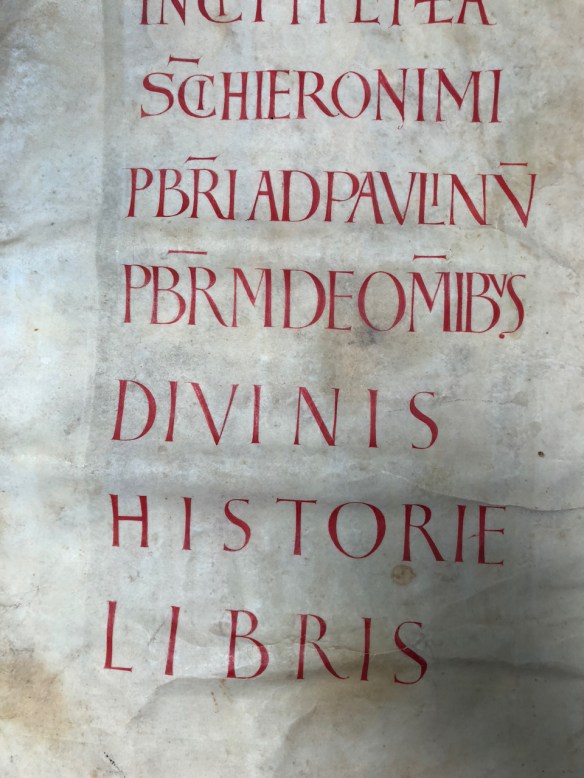 INCIPIT EPLA
SC̄I HIERONIMI
PBR̄I AD PAVLINV̄
PBR̄M DE OM̄IBVS
DIVINIS
HISTORIE
LIBRIS